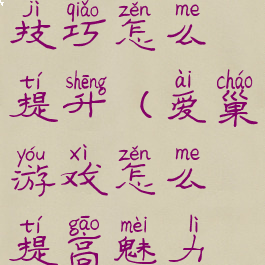 jì qiǎo zěn me
技巧怎么
tí shēng ài cháo
提升(爱巢
yóu xì zěn me
游戏怎么
tí gāo mèi lì
提高魅力